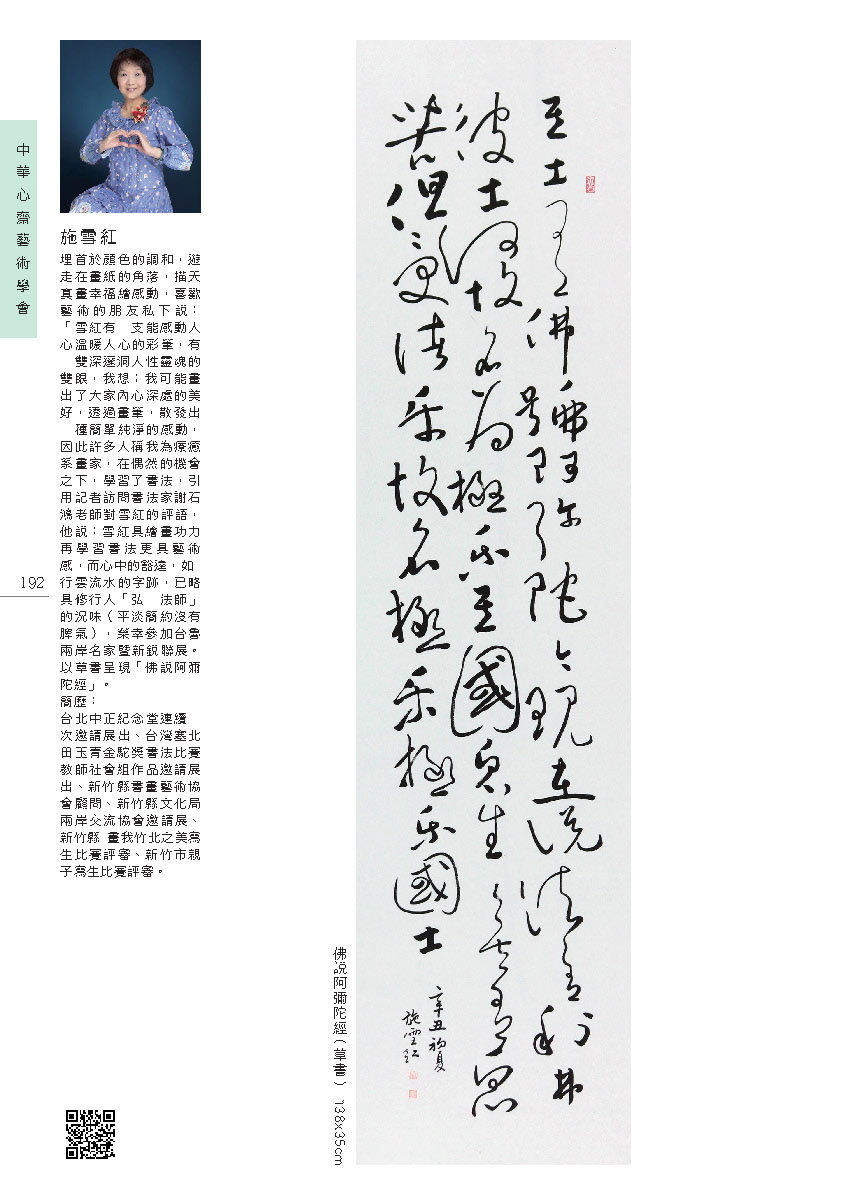 中華心齋藝術學會
施雪紅
埋首於顏色的調和，遊
走在畫紙的角落，描天
真畫幸福繪感動，喜歡
藝術的朋友私下說：
「雪紅有　支能感動人
心溫暖人心的彩筆，有
　雙深邃洞人性靈魂的
雙眼，我想；我可能畫
出了大家內心深處的美
好，透過畫筆，散發出
　種簡單純淨的感動，
因此許多人稱我為療癒
系畫家，在偶然的機會
之下，學習了書法，引
用記者訪問書法家謝石
鴻老師對雪紅的評語，
他說：雪紅具繪畫功力
再學習書法更具藝術
感，而心中的豁達，如
行雲流水的字跡，已略
具修行人「弘　法師」
的況味（平淡簡約沒有
脾氣），榮幸參加台魯
兩岸名家暨新銳聯展。
以草書呈現「佛說阿彌
陀經」。
簡歷：
台北中正紀念堂連續　
次邀請展出、台灣塞北
田玉青金駝獎書法比賽
教師社會組作品邀請展
出、新竹縣書畫藝術協
會顧問、新竹縣文化局
兩岸交流協會邀請展、
新竹縣 畫我竹北之美寫
生比賽評審、新竹市親
子寫生比賽評審。
192
其土有佛號阿彌陀今現在說法舍利弗
彼土何故名為極樂其國眾生無有眾
苦但受諸樂故名極樂極樂國土
辛丑初夏
施雪紅
佛說阿彌陀經（草書） 138x35cm